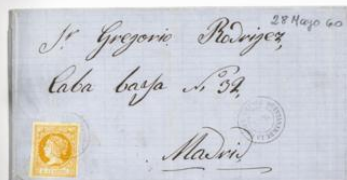 28 Mayo 60
Sr Gregorio Rodrigez,
Caba bassa Nº 32,
Madrid